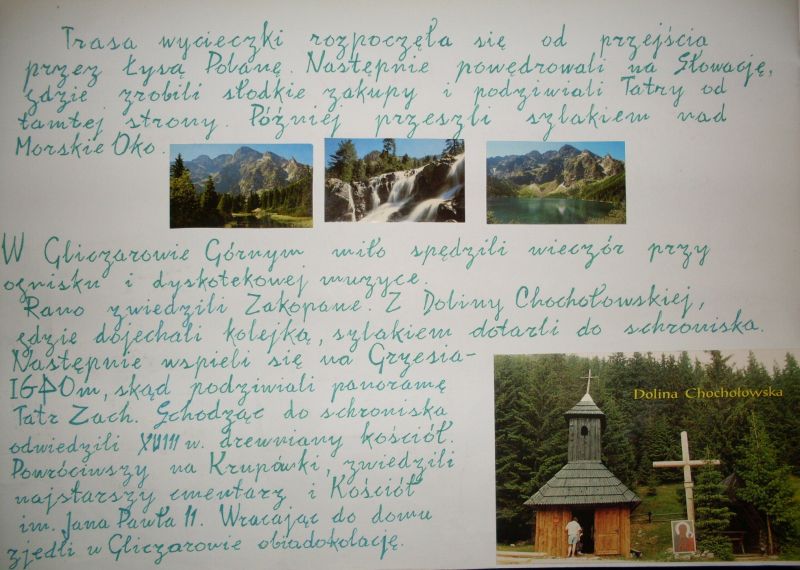 Trasa wycieczki rozpoczęła się od przejścia
przez Łysą Polanę. Następnie powędrowali na Słowację,
gdzie zrobili słodkie zakupy i podziwiali Tatry od
tamtej strony. Później przeszli szlakiem nad
Morskie Oko.
W Gliczarowie Górnym miło spędzili wieczór przy
ognisku i dyskotekowej muzyce.
Rano zwiedzili Zakopane. Z Doliny Chochołowskiej,
gdzie dojechali kolejką, szlakiem dotarli do schroniska.
Następnie wspieli się na Grzesia-
1640m, skąd podziwiali panoramę
Tatr Zach. Schodząc do schroniska
odwiedzili XVIII w. drewniany kościół.
Powróciwszy na Krupówki, zwiedzili
najstarszy cmentarz i Kościół
im. Jana Pawła II. Wracając do domu
zjedli w Gliczarowie obiadokolację.
Dolina Chochołowska